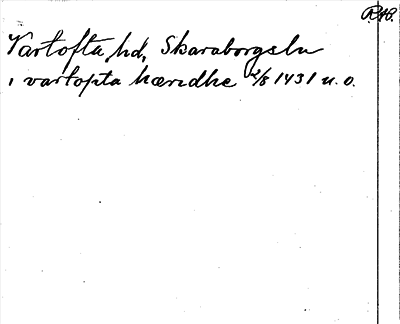 RAO.
Vartofta hd, Skaraborgs län
i vartopta hæredhe 2/8 1431 u. o.